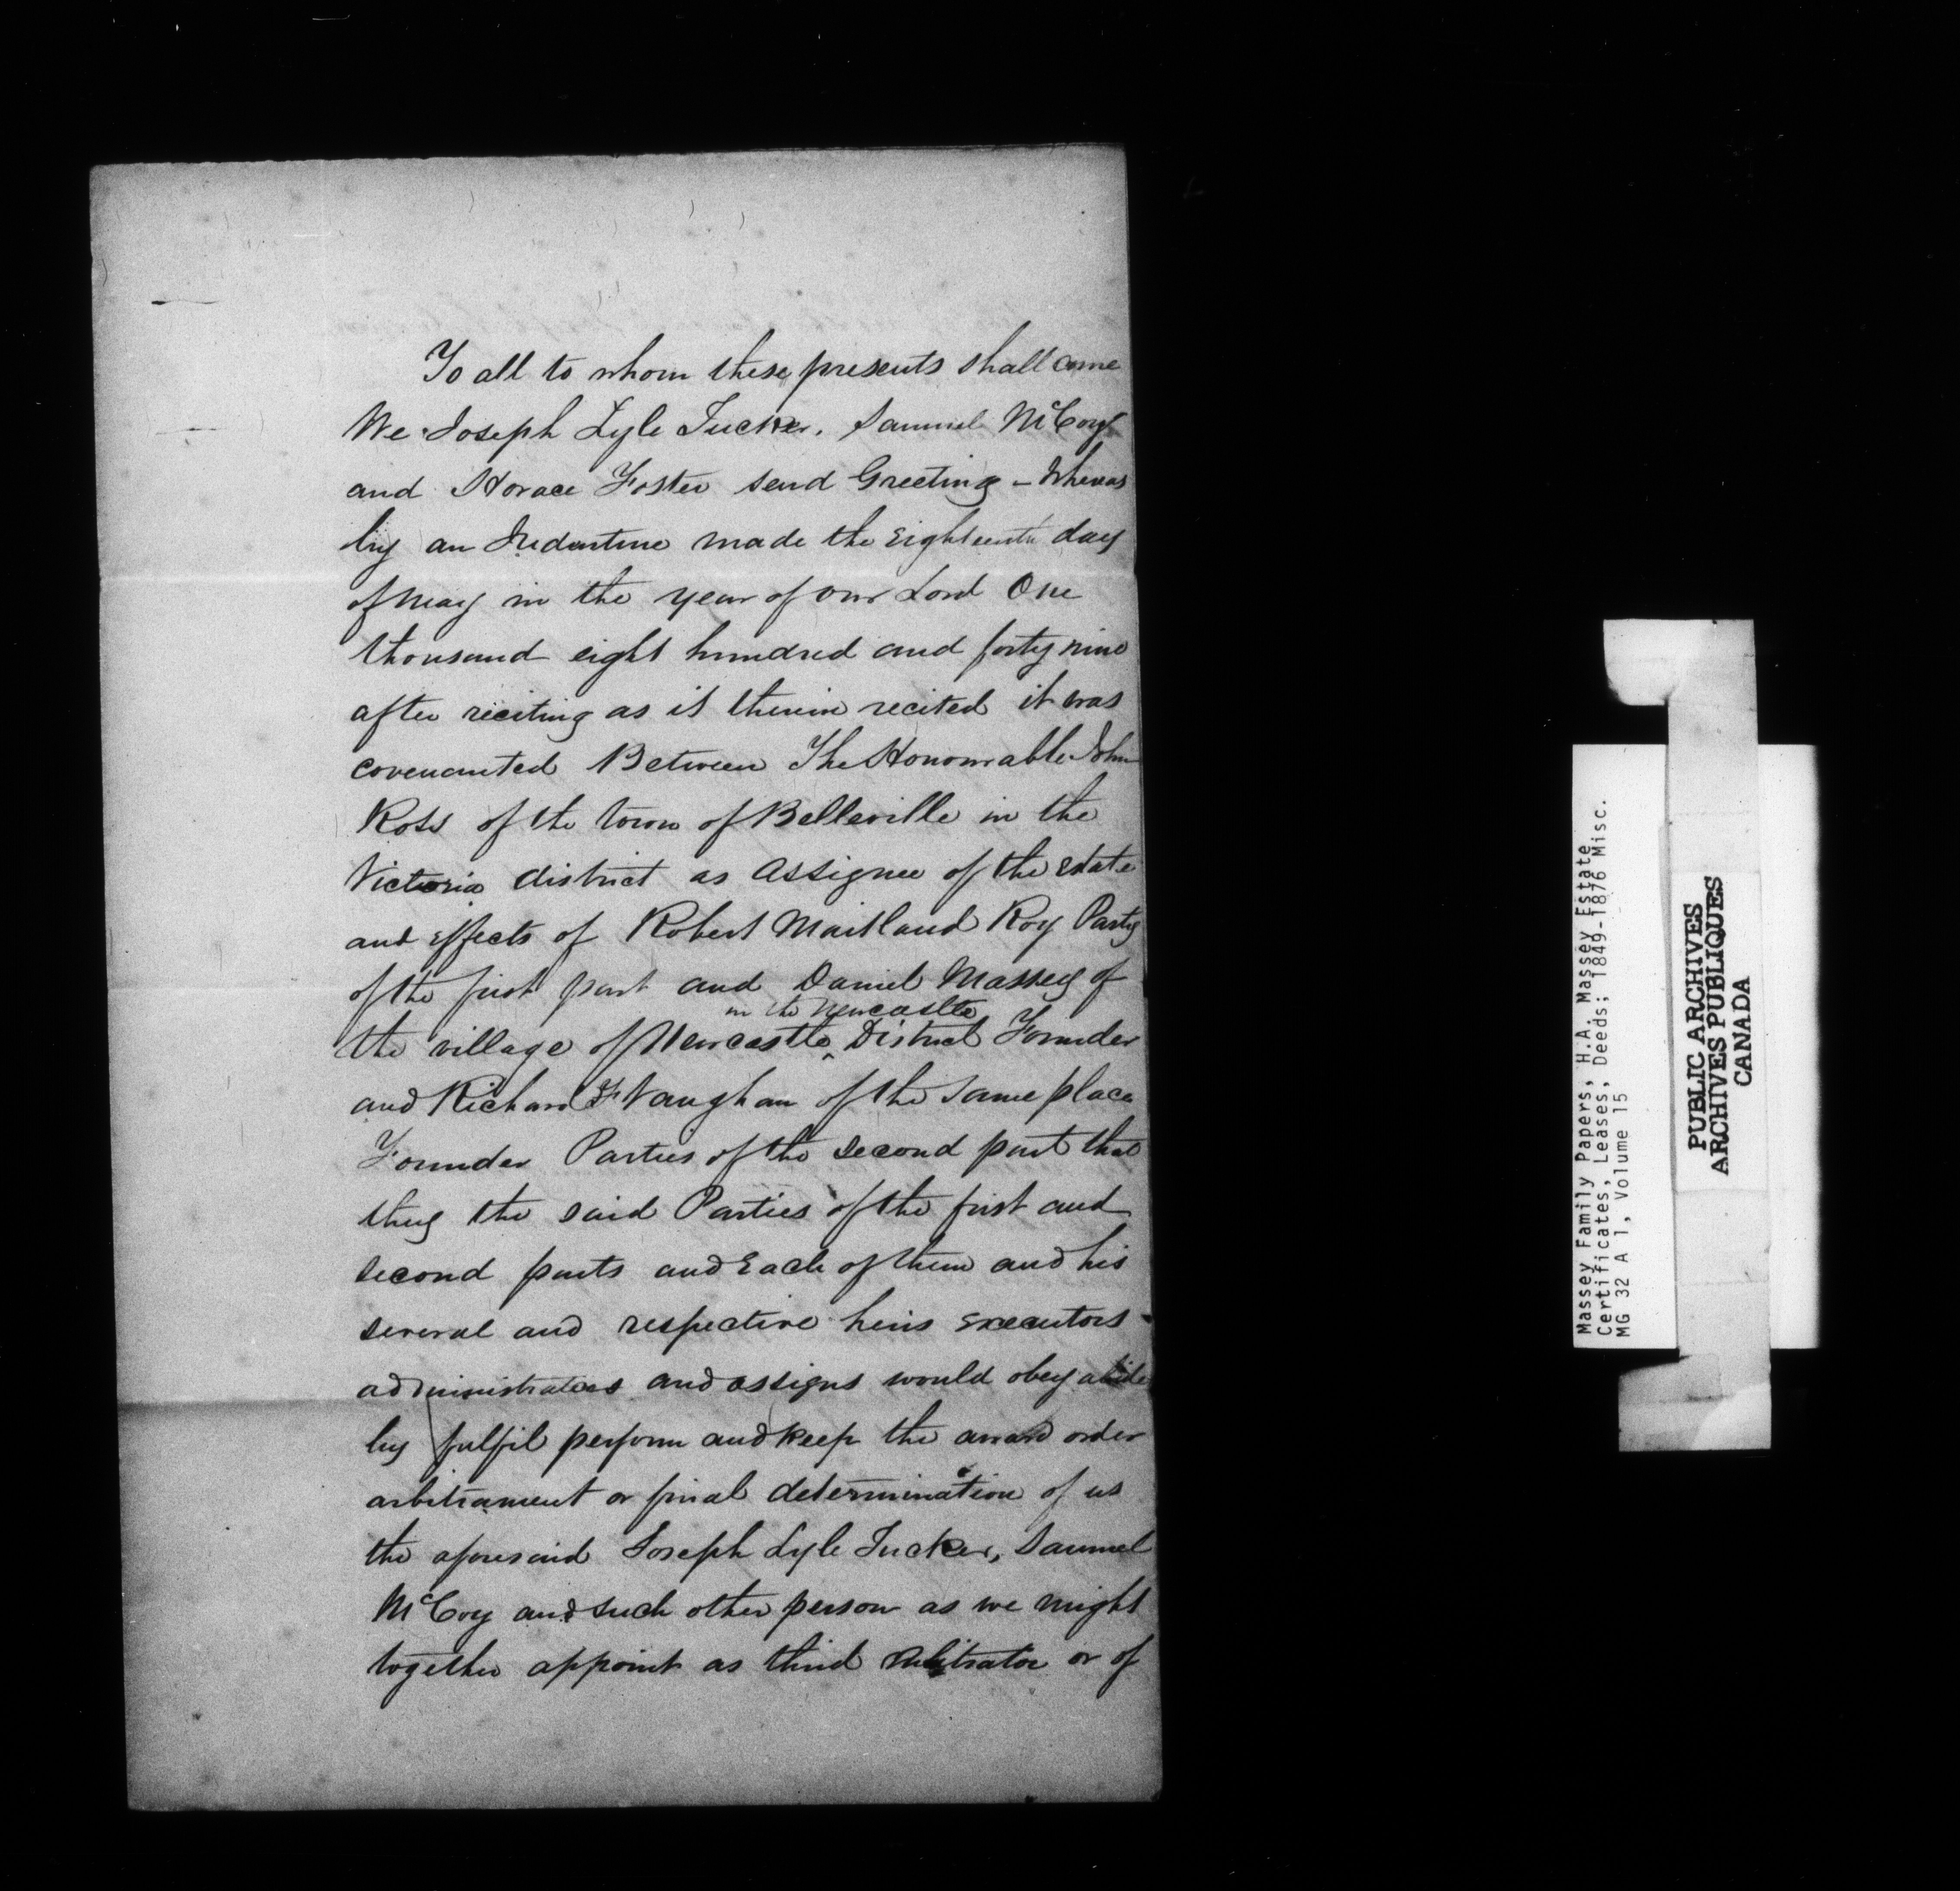 To all to whom these presents shall come
We Joseph Lyle Tucker, Samuel McCoy
and Horace Foster send Greeting – Whereas
by an Indenture made the Eighteenth day
of May in the year of our Lord One
thousand eight hundred and forty nine
after reciting as it therein recited it was
covenanted Between The Honourable John
Ross of the town of Belleville in the
Victoria district as Assignee of the estate
and Effects of Robert Maitland Roy Party
of the first part and Daniel Massey of
in the Newcastle
the village of Newcastle ^ District Founder
and Richard F Vaughan of the same place
Founder Parties of the second part that
they the said Parties of the first and
second parts and Each of them and his
several and respective heirs Executors
administrators and assigns would obey abide
by fulfil perform and keep the award order
arbitrament or final determination of us
the aforesaid Joseph Lyle Tucker, Samuel
McCoy and such other person as we might
together appoint as third Arbitrator or of
Massey Family Papers, H.A. Massey Estate
Certificates, Leases, Deeds; 1849-1876 Misc.
MG 32 A 1, Volume 15
PUBLIC ARCHIVES
ARCHIVES PUBLIQUES
CANADA